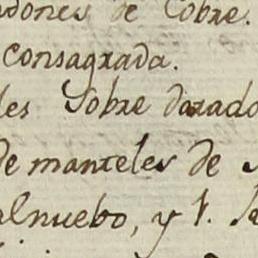 dones de Cobre.
consagrada.
les Sobre dorado
de manteles de
alnuebo, y 1.